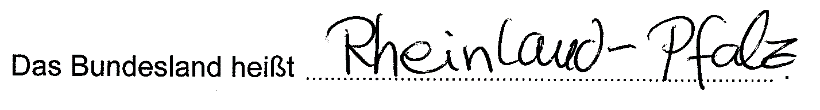 Das Bundesland heißt Rheinland-Pfalz.